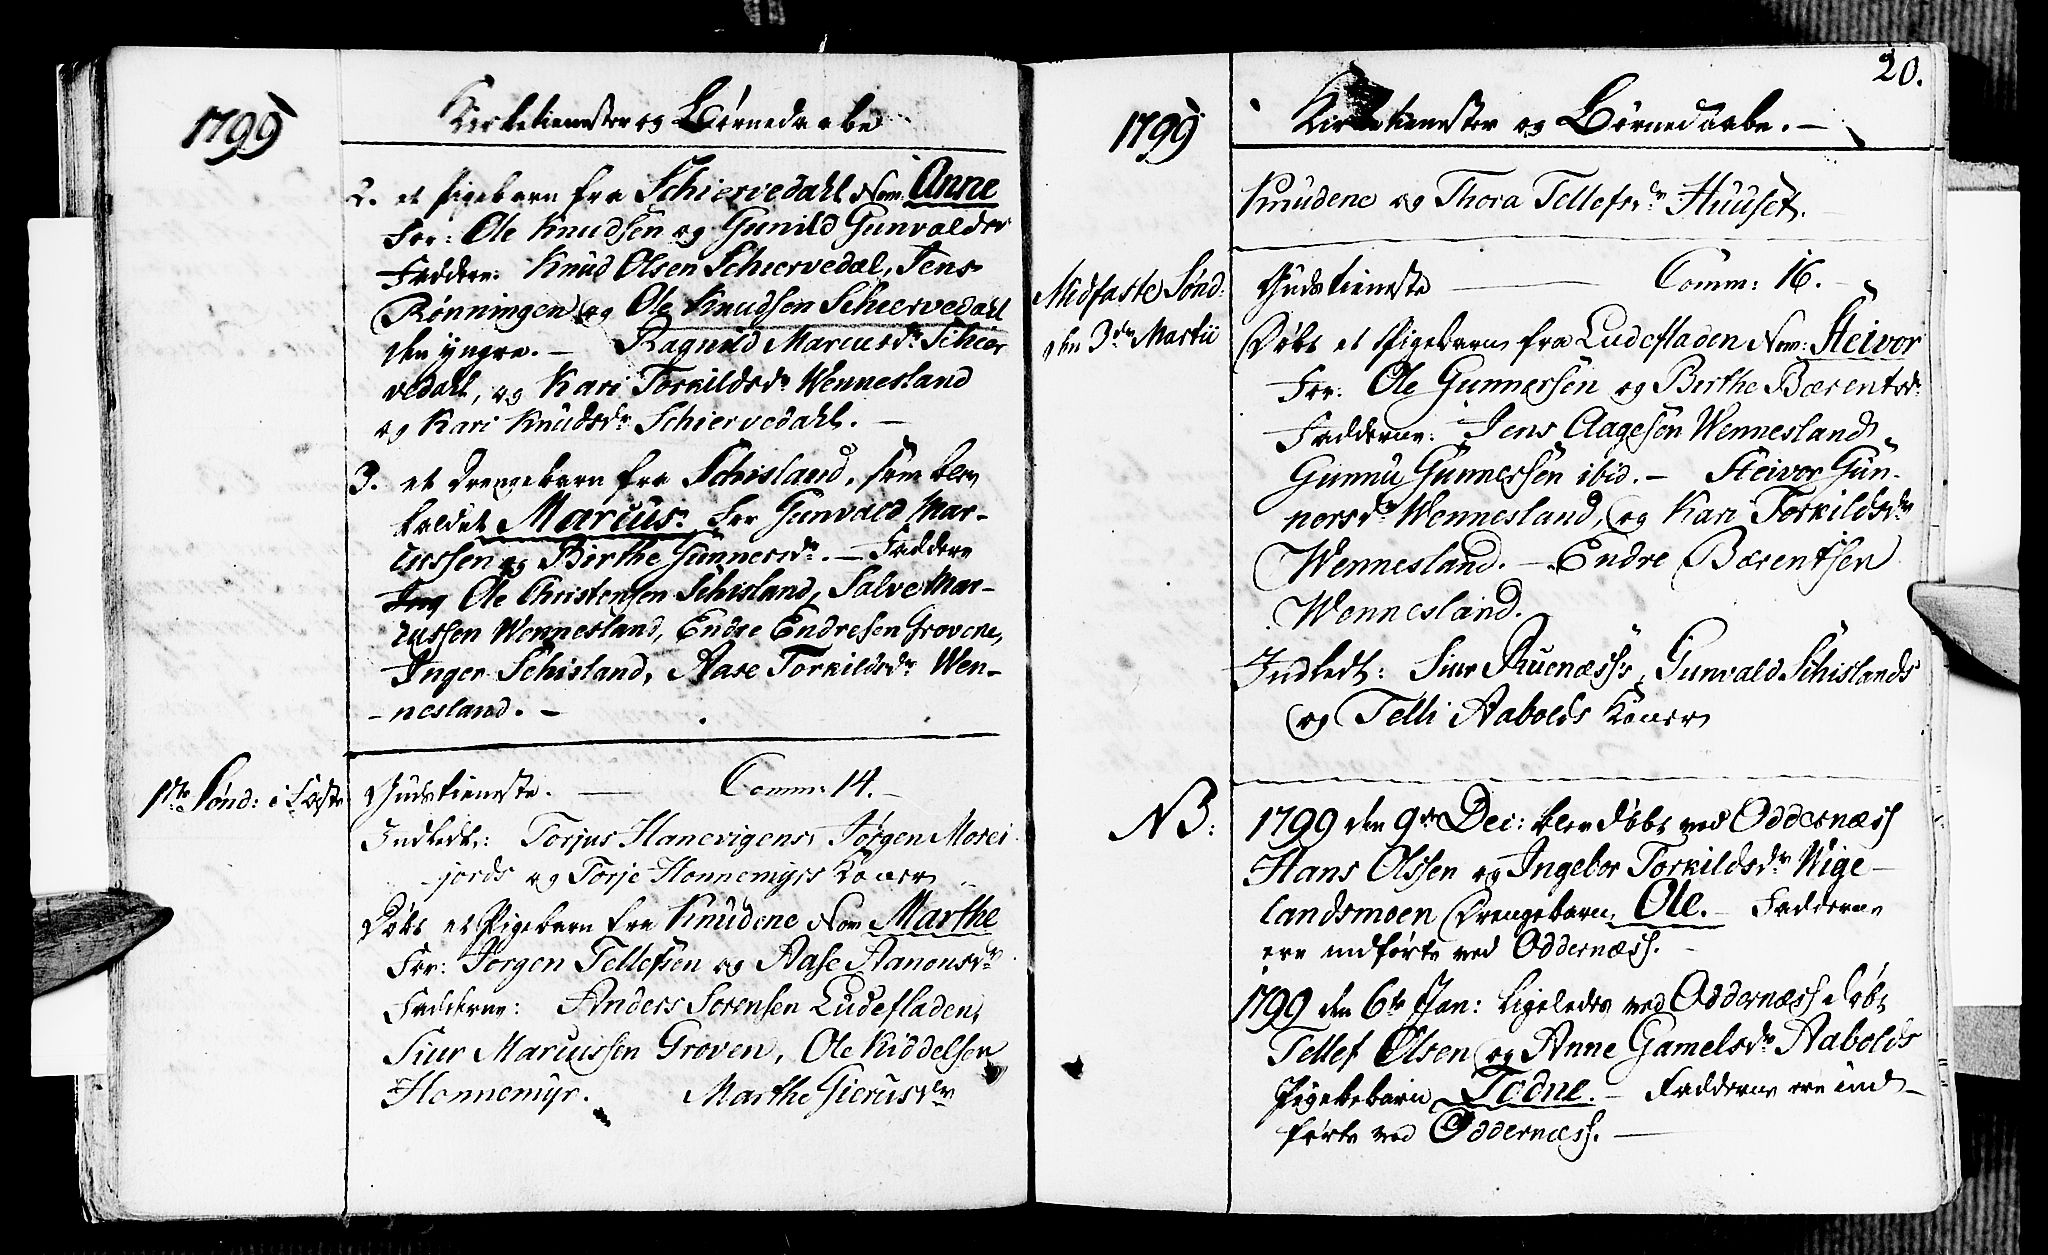 1799
Kirketienester og Børnedaabe
2. et Pigebarn fra Schiervedahl Nom: Anne
For: Ole Knudsen og Gunild Gunvaldsdr
Faddere: Knud Olsen Schiervedal, Jens
Rønningen og Ole Knudsen Schiervedahl
den yngre. – Ragnild Marcusdr Schier
vedahl, og Kari Torkildsdr Wennesland
og Kari Knudsdr Schiervedahl. –
3. et Drengebarn fra Schisland, som blev
kaldet Marcus. For Gunvald Mar-
cussen og Birthe Gunnersdr. – Faddere
Ole Christensen Schisland, Salve Mar-
cussen Wennesland, Endre Endresen Grovene,
Inger Schisland, Aase Torkildsdr Wen-
-nesland. –
1ste Sønd: i Faste
Gudstieneste. – Comm: 14. –
Indledt: Torjus Hanevigens, Jørgen Mosei
jords og Torje Honnemyrs Koner
Døbt et Pigebarn fra Knudene Nom Marthe
For: Jørgen Tellefsen og Aase Aanonsdr
Fadderne: Anders Sørensen Ludefladen,
Siur Marcussen Groven, Ole Kiddelsen
Honnemyr. Marthe Gierusdr
20.
1799
Kirketienester og Børnedaabe. –
Knudene og Thora Tellefsdr Huuset.
Midfaste Sønd:
den 3die Martii
Gudstieneste – Comm: 16. –
Døbt et Pigebarn fra Ludefladen Nom: Steivor
For: Ole Gunnersen og Berthe Bærentsdr
Fadderne: Jens Aagesen Wennesland,
Gunnu Gunnersen ibid. – Steivor Gun-
nersdr Wennesland, og Kari Torkildsdr
Wennesland. – Endre Bærentsen
Wennesland.
Indledt: Siur Ruenæss's, Gunvald Schislands
og Telli Aabolds Koner
NB:
1799 den 9de Dec: blev døbt ved Oddernæss
Hans Olssen og Ingebor Torkildsdr Wige-
landsmoen Drengebarn, Ole. – Fadderne
ere indførte ved Oddernæss. –
1799 den 6te Jan: ligeledes ved Oddernæss døbt
Tellef Olsen og Anne Gamelsdr Aabolds
Pigebarn Todne. – Fadderne ere ind-
førte ved Oddernæss. –